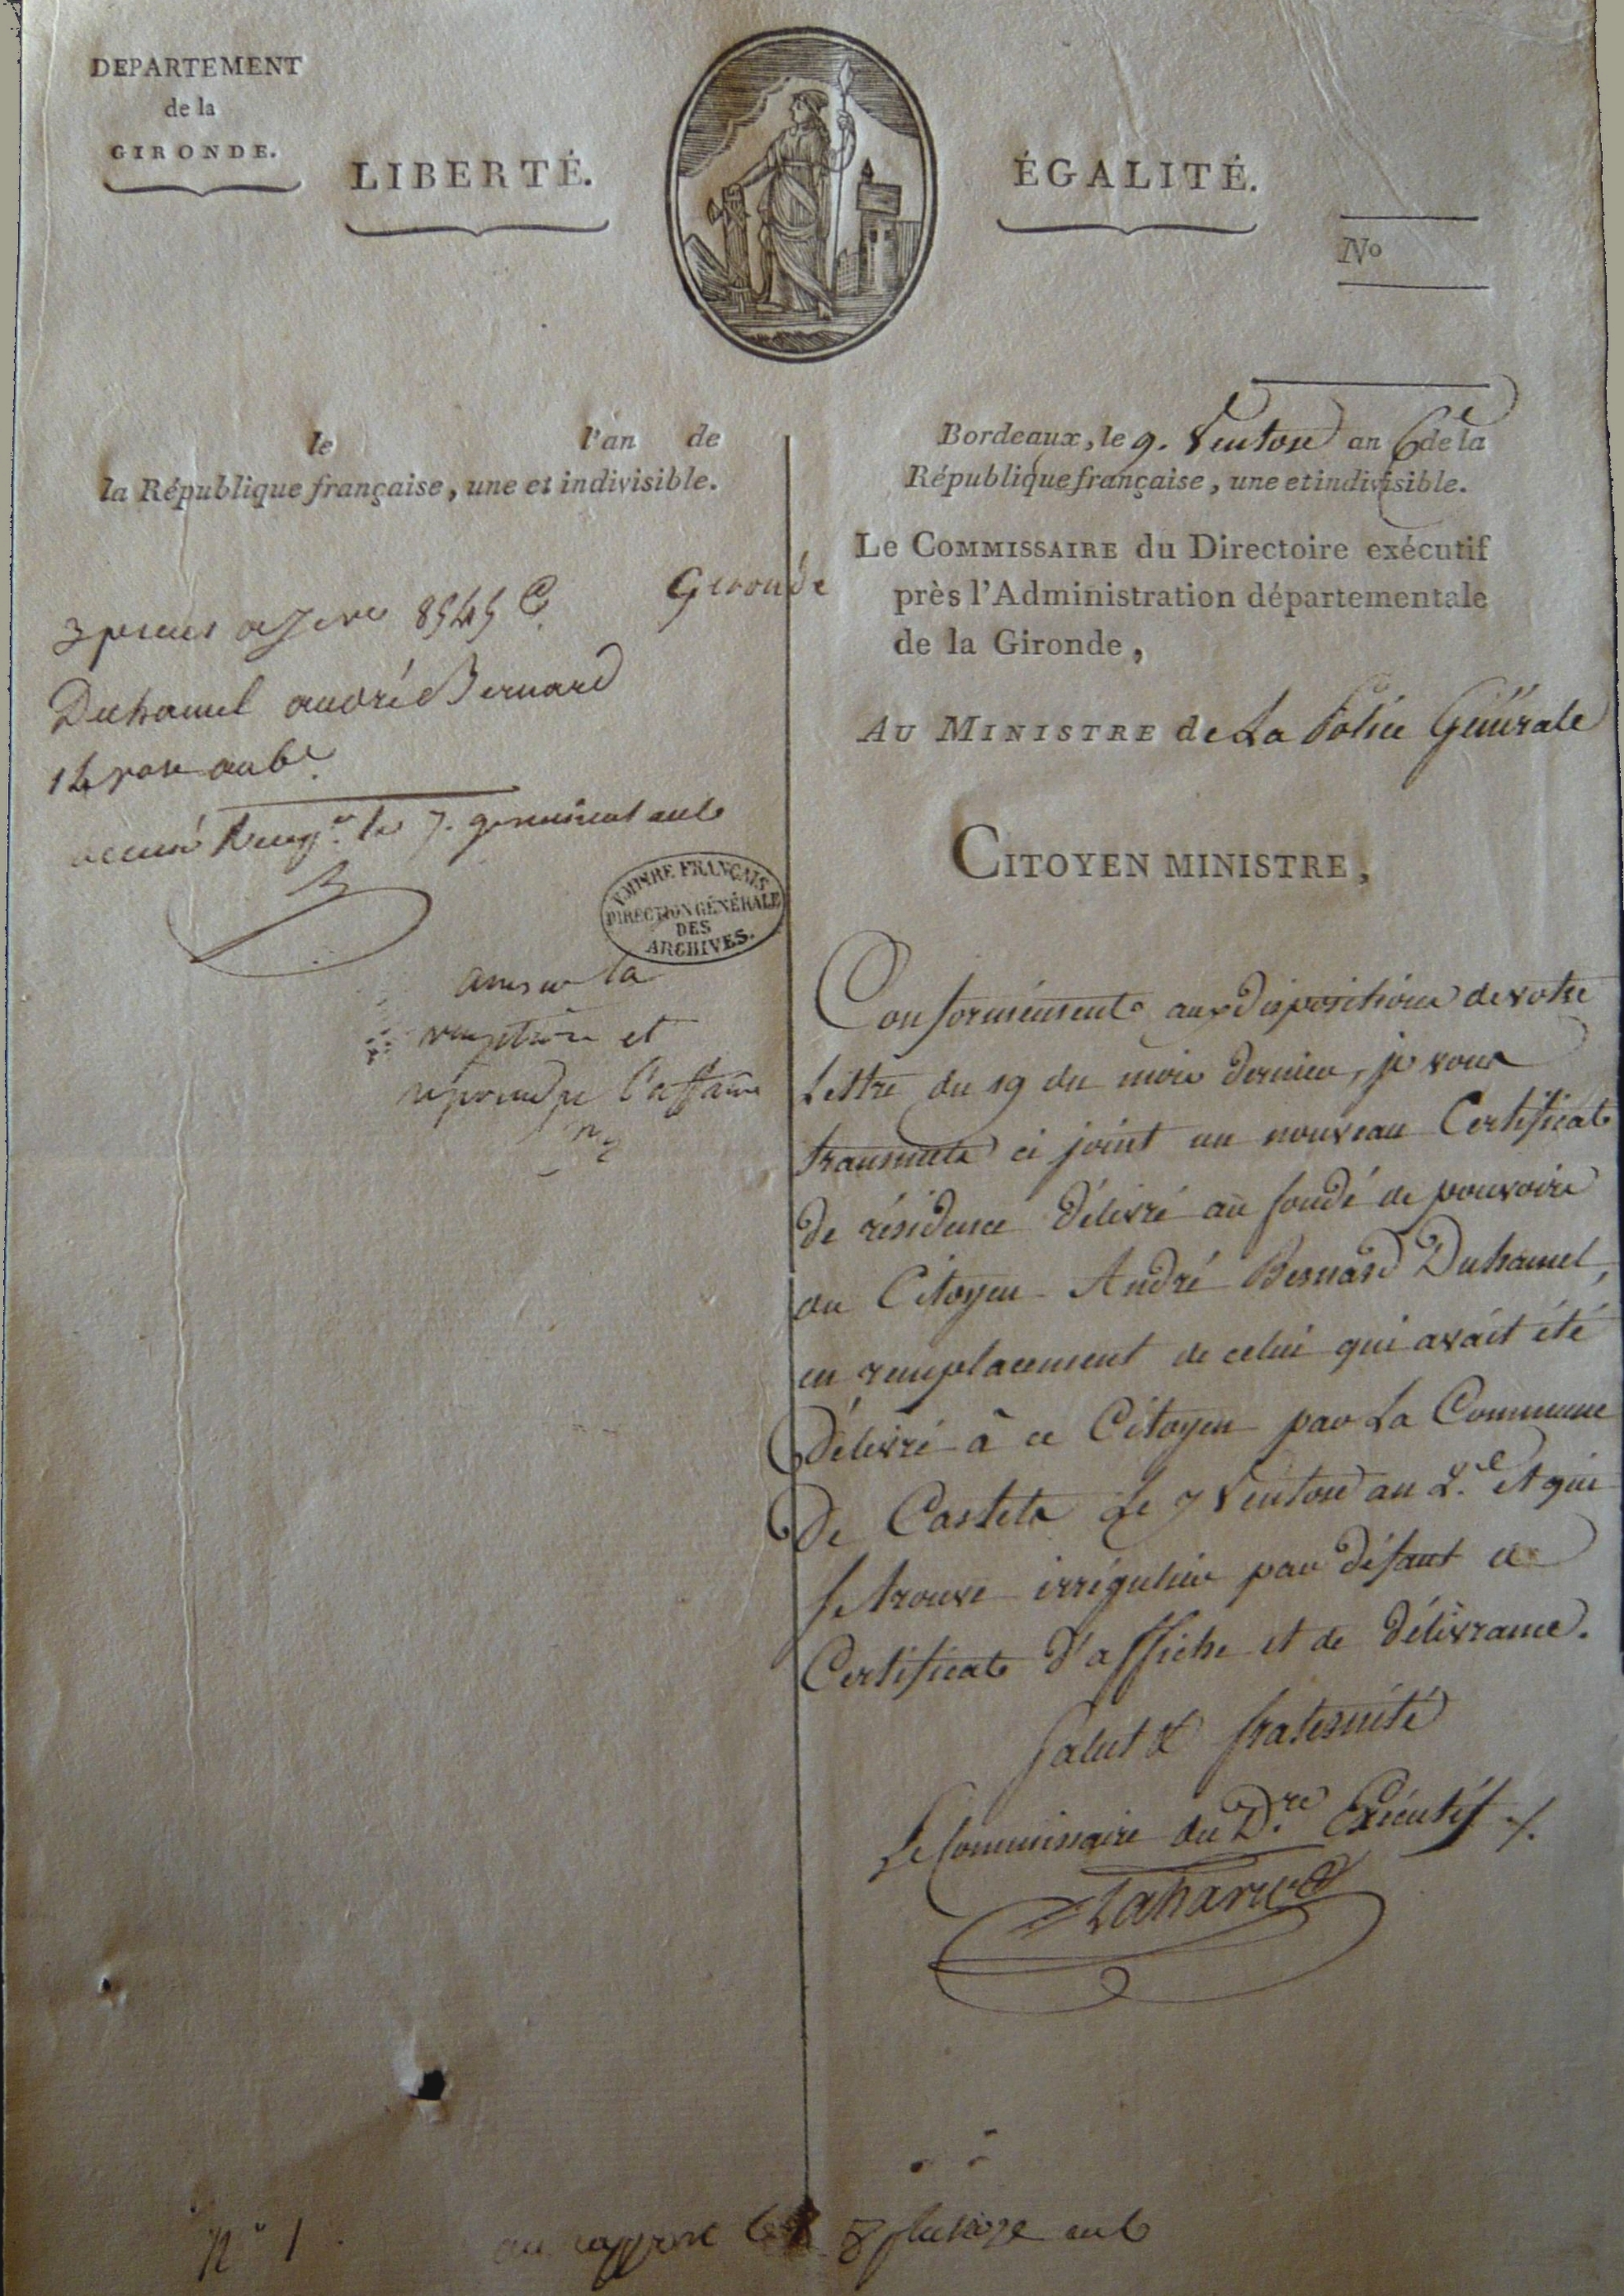 DEPARTEMENT
de la
GIRONDE.
LIBERTÉ.
ÉGALITÉ.
No
le l'an de
la République française, une et indivisible.
Gironde
3 pieces 8545 C.
Duhamel andré Bernard
an 6e
le 7. germinal an 6
EMPIRE FRANÇAIS
DIRECTION GÉNÉRALE
DES
ARCHIVES.
la
et
l'affaire
Bordeaux, le 9. Ventose an 6e de la
République française, une et indivisible.
Le COMMISSAIRE du Directoire exécutif
près l'Administration départementale
de la Gironde,
AU MINISTRE de La Police Générale
CITOYEN MINISTRE,
Conformément aux dispositions de votre
Lettre du 19 du mois dernier, je vous
transmets ci joint un nouveau Certificat
de résidence délivré au fondé de pouvoirs
du Citoyen André Bernard Duhamel,
en remplacement de celui qui avait été
délivré à ce Citoyen par La Commune
de Castets Le 7 Ventose an 2.e et qui
se trouve irrégulier par défaut de
Certificat d'affiche et de délivrance.
Salut & fraternité
Le Commissaire du D.re Exécutif
Lahary
N° 1
au rapport 8 pluviose an 6